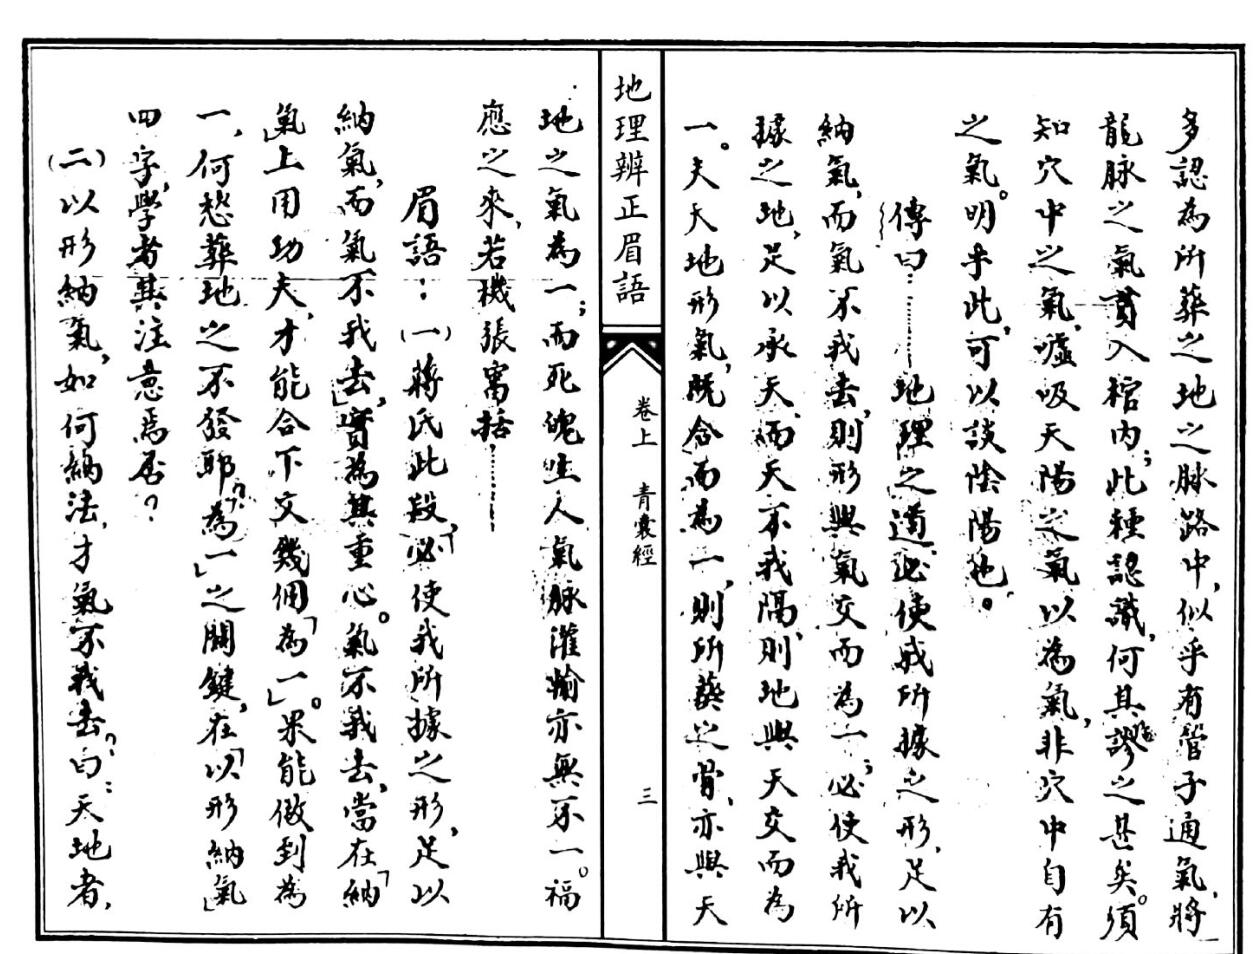 多認為所葬之地之脉路中，似乎有管子通氣，將
龍脉之氣貫入棺內；此種認識，何其謬之甚矣。須
知穴中之氣，噓吸天陽之氣以為氣，非穴中自有
之氣。明乎此，可以談陰陽也。
傳曰：………地理之道，必使我所據之形，足以
納氣，而氣不我去，則形與氣交而為一；必使我所
據之地，足以承天，而天不我隔，則地與天交而為
一。夫天地形氣，既合而為一，則所葬之骨，亦與天
地理辨正眉語
卷上 青囊經
三
地之氣為一；而死魄生人氣脉灌輸亦無不一。福
應之來，若機張審括，………
眉語：(一)蔣氏此段，「必使我所據之形，足以
納氣，而氣不我去」，實為其重心。氣不我去，當在「納
氣」上用功夫，才能合下文幾個「為一」。果能做到為
一，何愁葬地之不發耶？「為一」之關鍵，在「以形納氣」
四字，學者其注意焉否？
(二)以形納氣，如何納法，才氣不我去？曰：天地者，